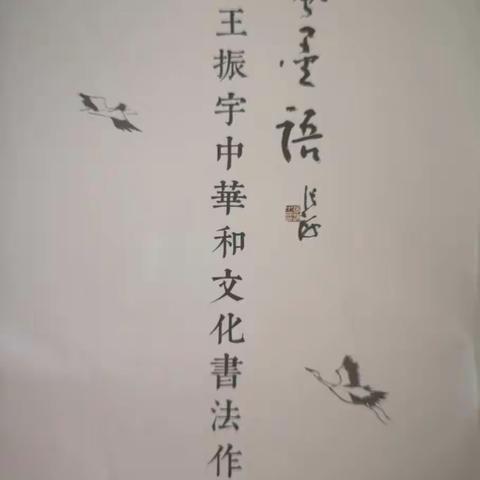 墨語
王振宇中華和文化書法作